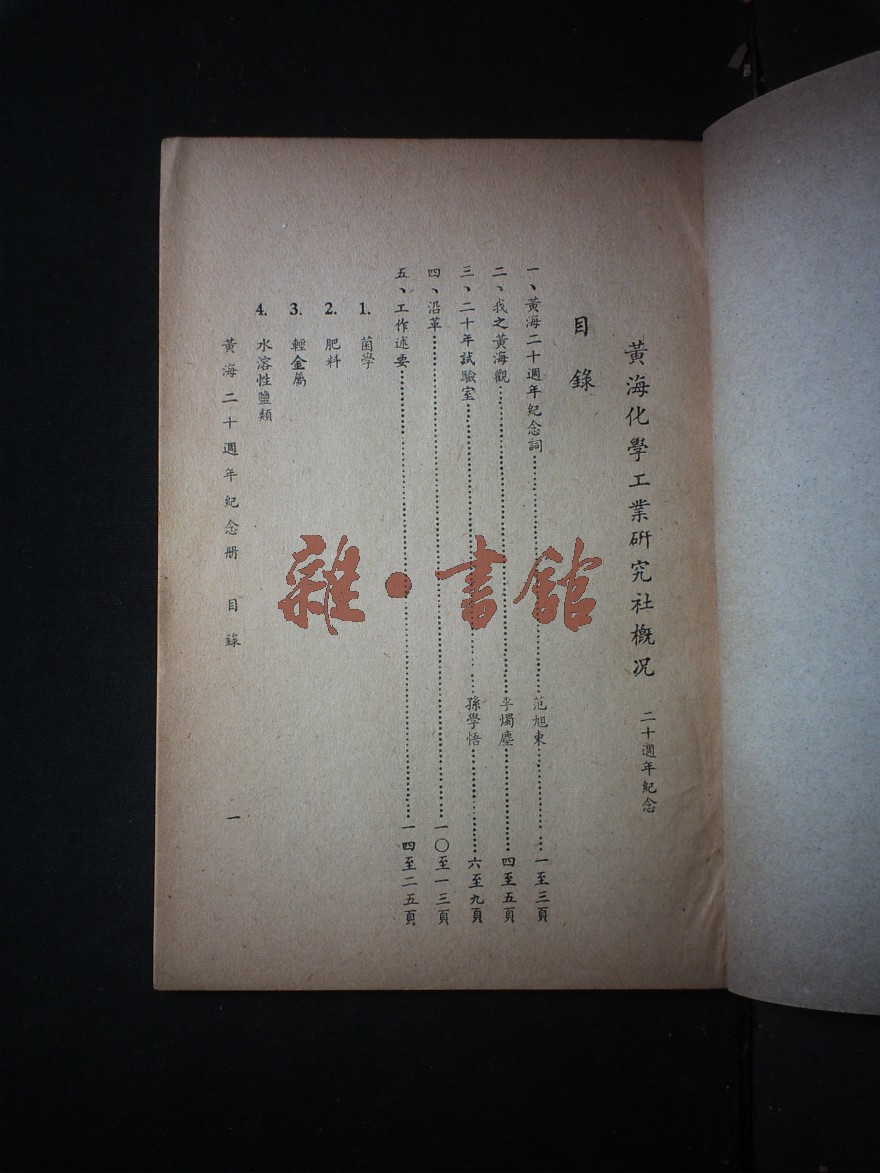 黃海化學工業硏究社槪況 二十週年紀念
目錄
一、黃海二十週年紀念詞……范旭東……一至三頁
二、我之黃海觀……李燭塵……四至五頁
三、二十年試驗室……孫學悟……六至九頁
四、沿革……一〇至一三頁
五、工作述要……一四至二五頁
1. 菌學
2. 肥料
3. 輕金属
4. 水溶性鹽類
黃海二十週年紀念册 目錄 一
雜·書館